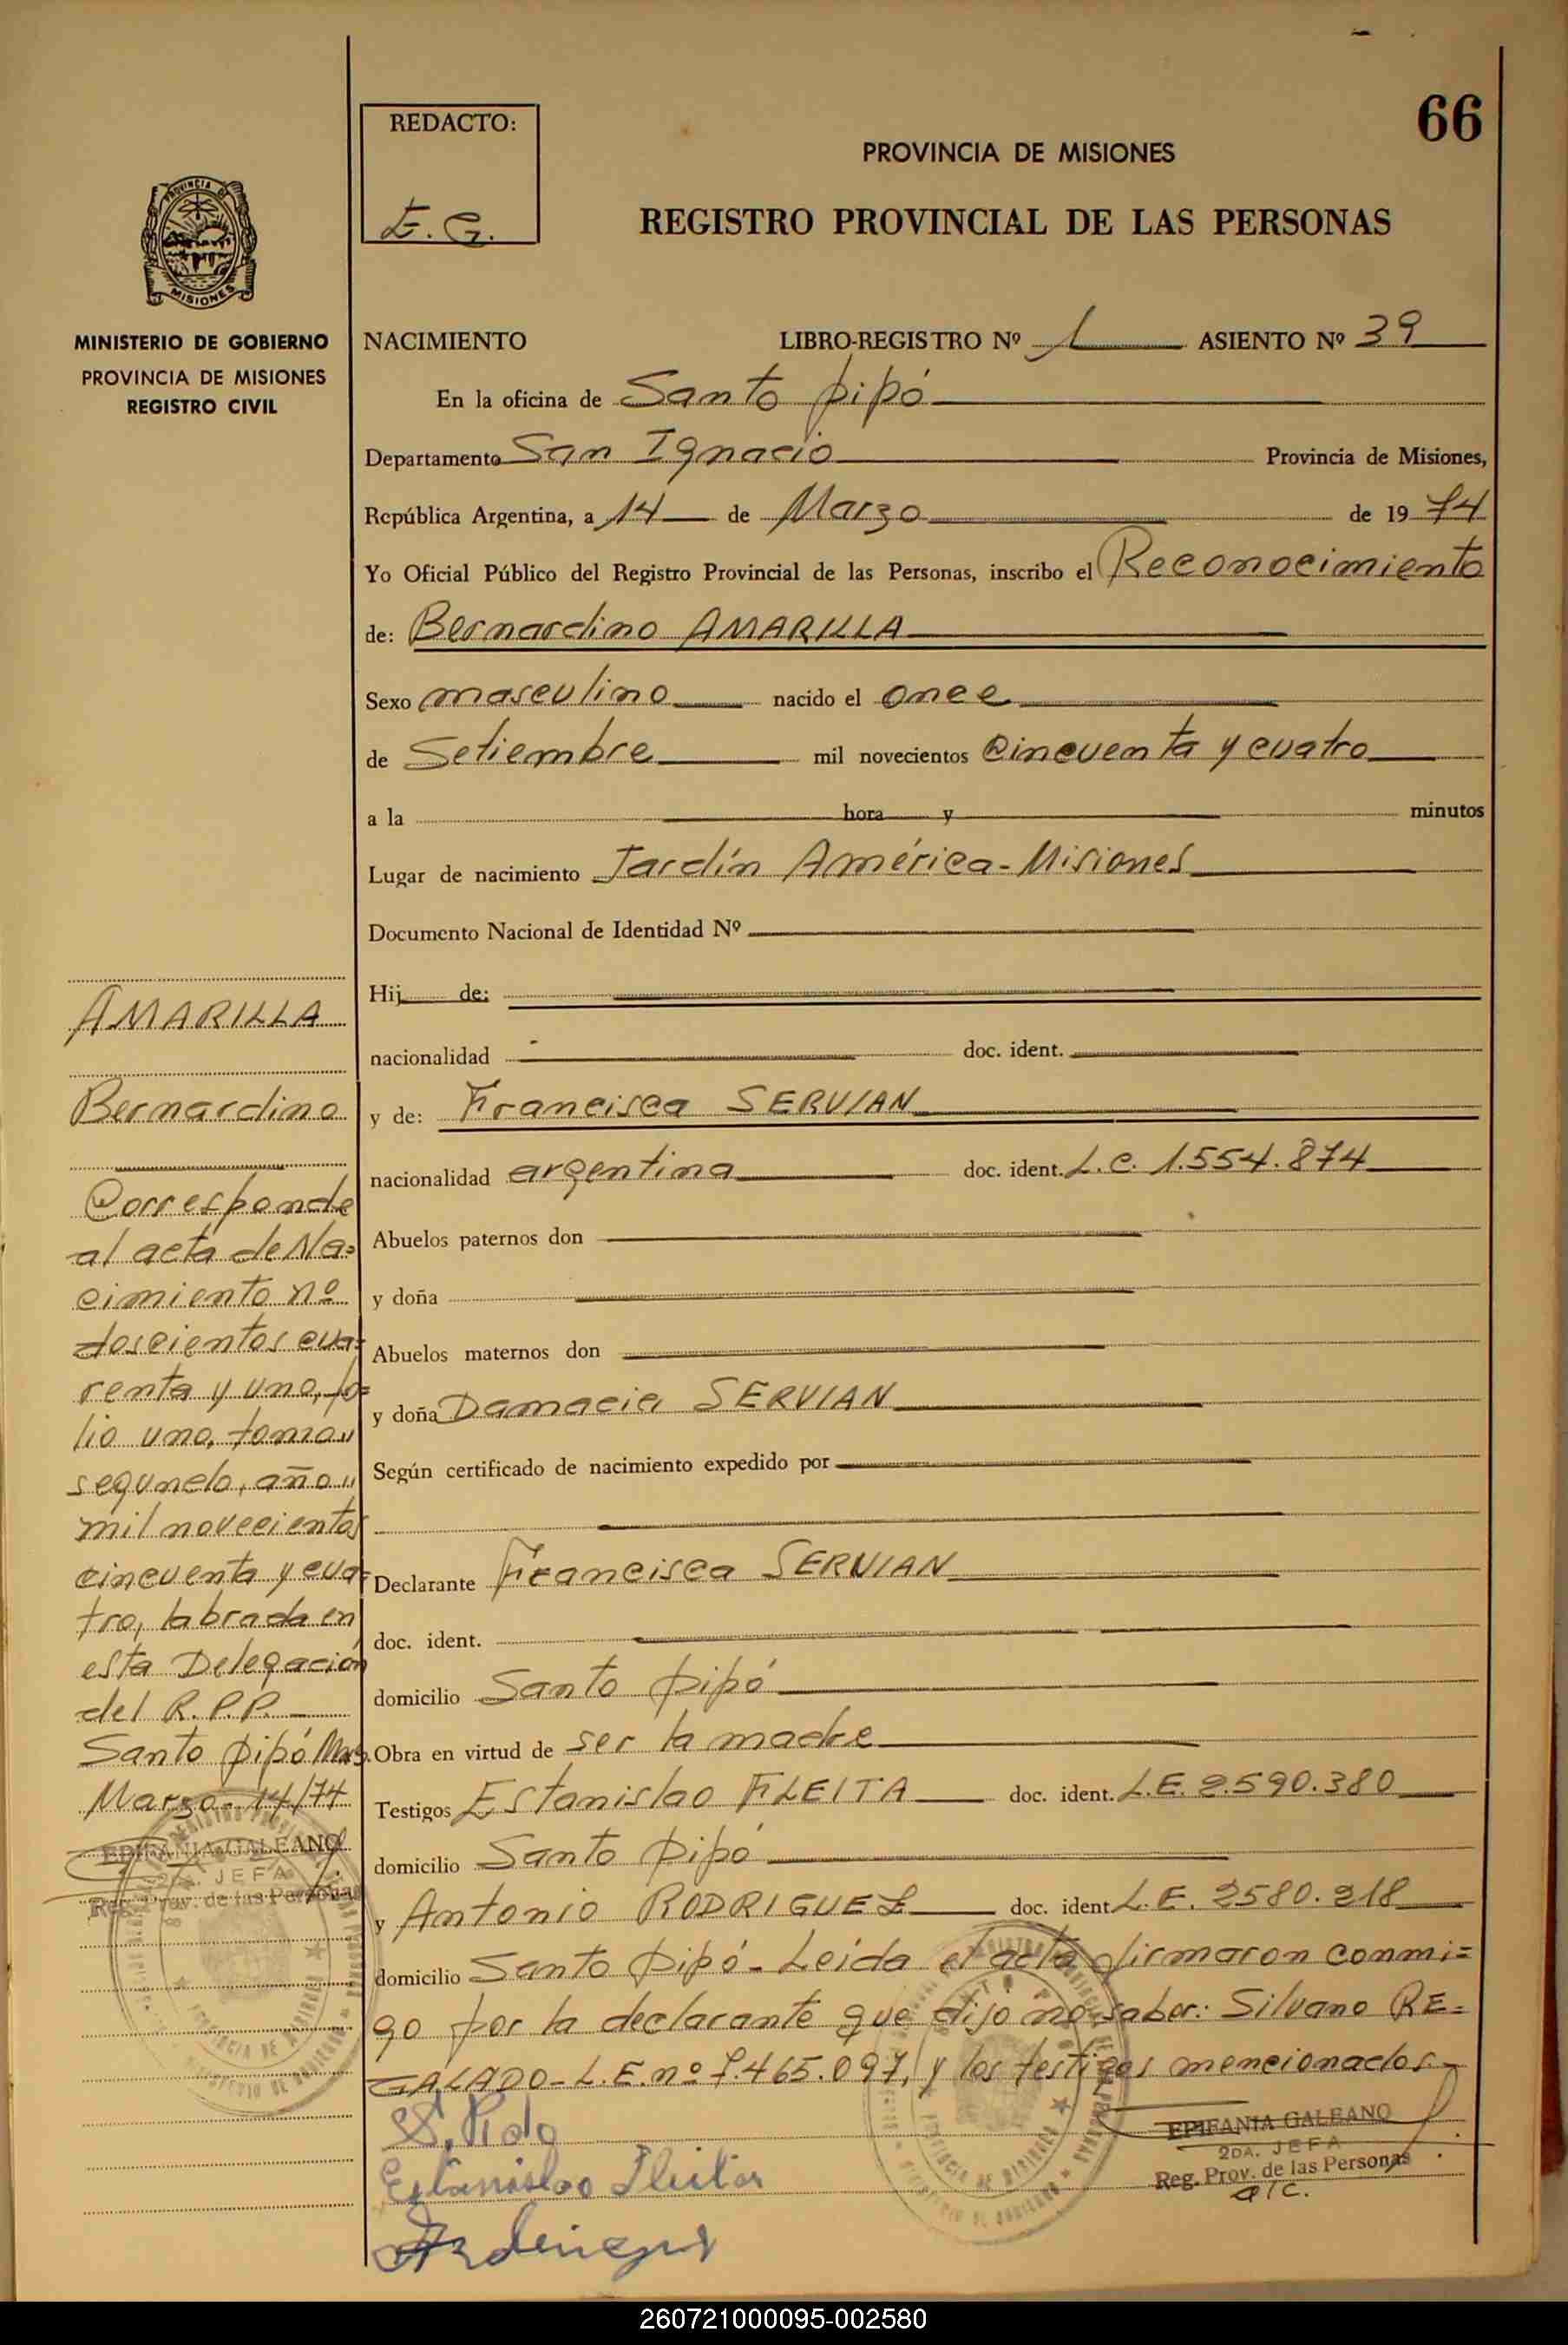 66
REDACTO:
E. G.
PROVINCIA DE MISIONES
REGISTRO PROVINCIAL DE LAS PERSONAS
PROVINCIA DE
MISIONES
MINISTERIO DE GOBIERNO
PROVINCIA DE MISIONES
REGISTRO CIVIL
NACIMIENTO LIBRO-REGISTRO Nº 1 ASIENTO Nº 39
En la oficina de Santo Pipó
Departamento San Ignacio Provincia de Misiones,
República Argentina, a 14 de Marzo de 1974
Yo Oficial Público del Registro Provincial de las Personas, inscribo el Reconocimiento
de: Bernardino AMARILLA
Sexo masculino nacido el once
de Setiembre mil novecientos Cincuenta y cuatro
a la hora y minutos
Lugar de nacimiento Jardín América - Misiones
Documento Nacional de Identidad Nº
Hij de:
nacionalidad doc. ident.
y de: Francisca SERVIAN
nacionalidad argentina doc. ident. L.C. 1.554.874
Abuelos paternos don
y doña
Abuelos maternos don
y doña Damacia SERVIAN
Según certificado de nacimiento expedido por
Declarante Francisca SERVIAN
doc. ident.
domicilio Santo Pipó
Obra en virtud de ser la madre
Testigos Estanislao FLEITA doc. ident. L.E. 2.590.380
domicilio Santo Pipó
y Antonio RODRIGUEZ doc. ident. L.E. 2580.218
domicilio Santo Pipó - Leida el acta firmaron conmi=
go por la declarante que dijo no saber: Silvano RE=
GALADO - L.E. nº 7.465.097, y los testigos mencionados -
Estanislao Fleitas
EPIFANIA GALEANO
2DA. JEFA
Reg. Prov. de las Personas
a/c.
AMARILLA
Bernardino
Corresponde
al acta de Na=
cimiento nº
doscientos cua=
renta y uno, fo=
lio uno, tomo "
segundo, año "
mil novecientos
cincuenta y cua=
tro, labrada en
esta Delegación
del R.P.P.
Santo Pipó
Marzo - 14/74
EPIFANIA GALEANO
2DA. JEFA
Reg. Prov. de las Personas
260721000095-002580